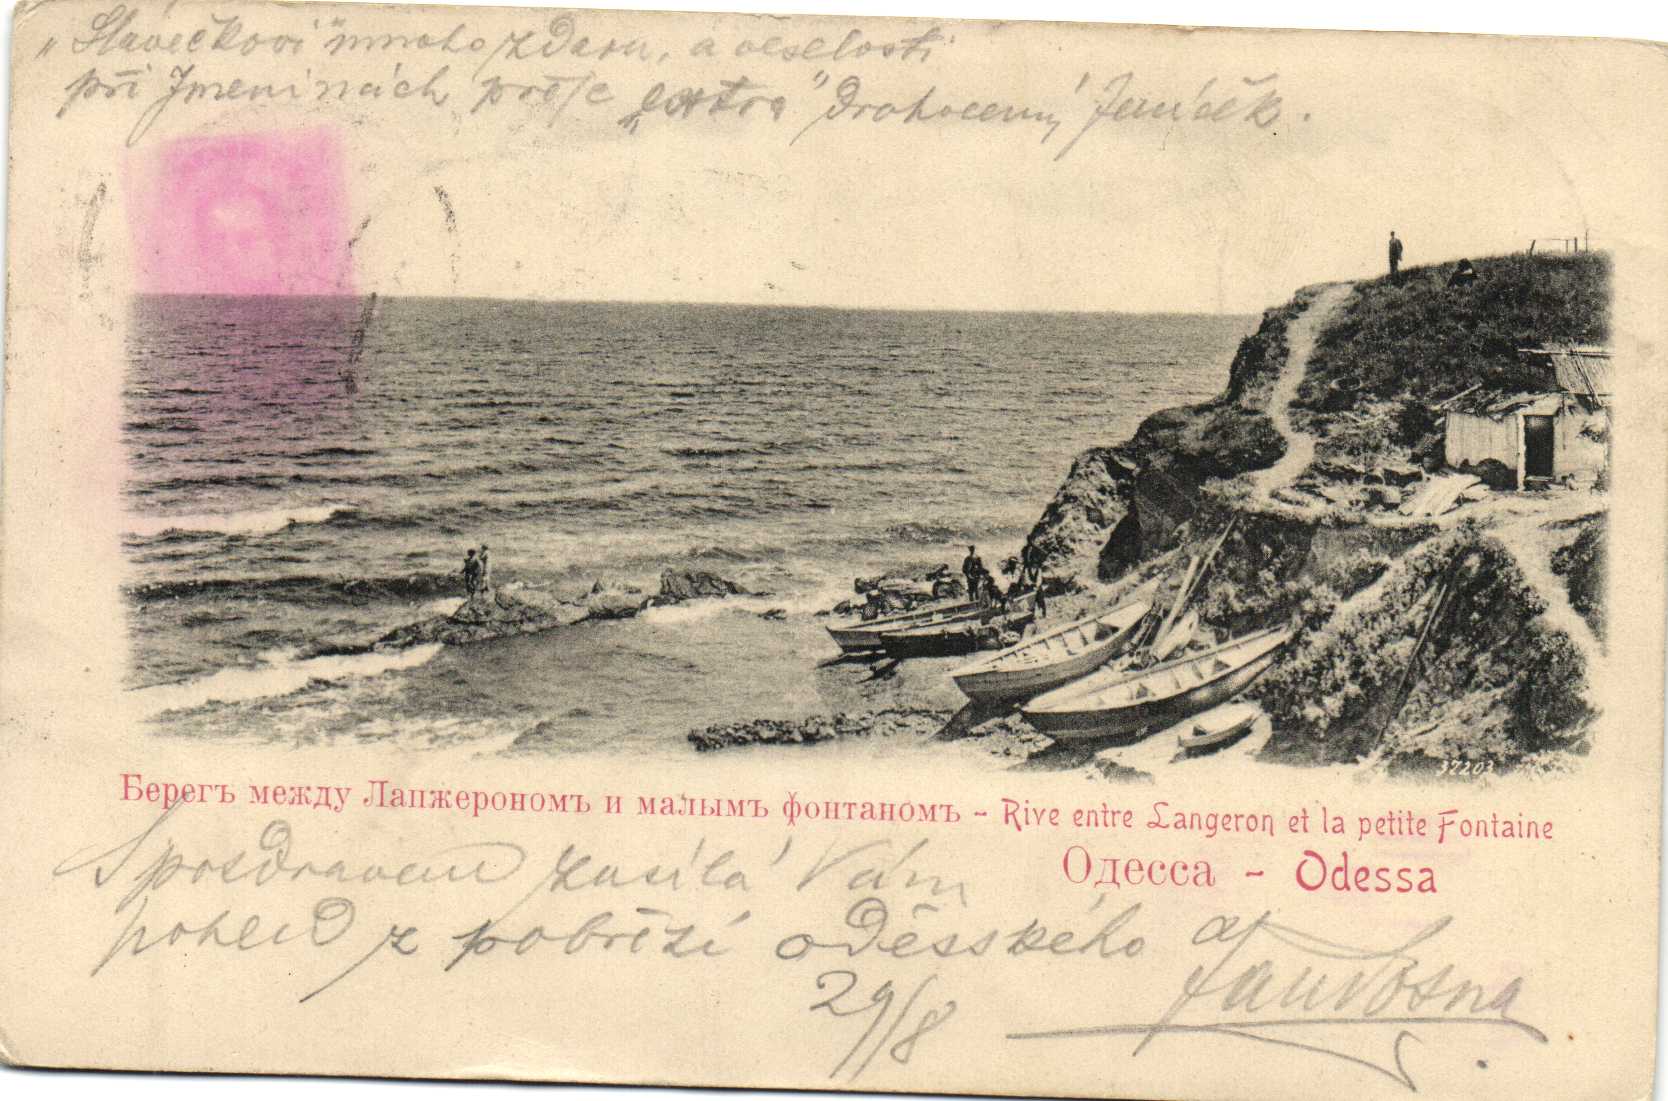 „Slávečkovi" mnoho zdaru, a veselosti
při Jmeninách přeje „extra" drahocenný
Берегъ между Ланжерономъ и малымъ фонтаномъ - Rive entre Langeron et la petite Fontaine
Одесса - Odessa
S pozdravem zasílá Vám
pohled z pobřeží oděsského
29/8
37203